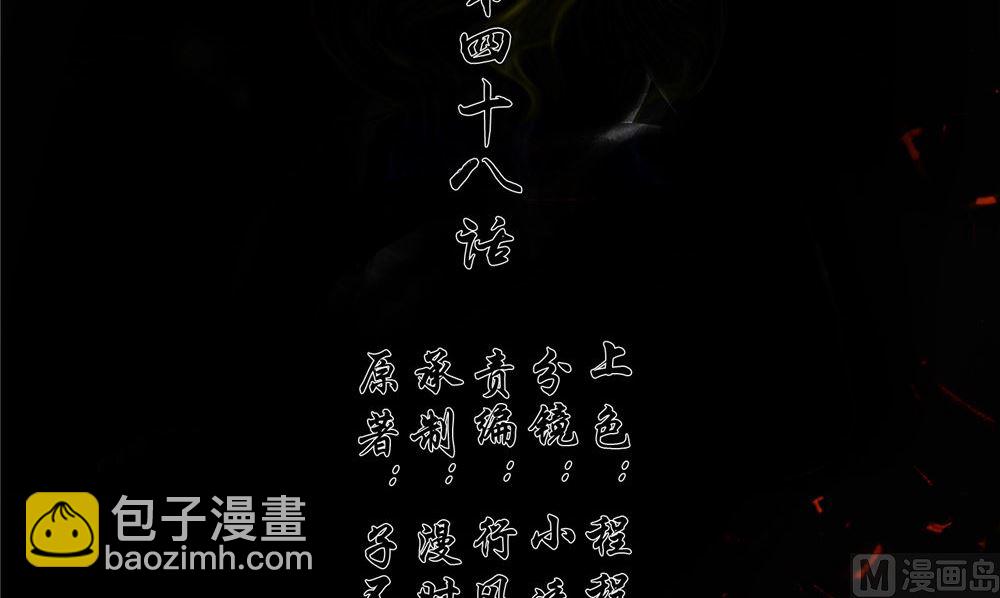 四十八话
上色：程
分镜：小
责编：行
承制：漫
原著：子
包子漫畫
baozimh.com
M漫画岛